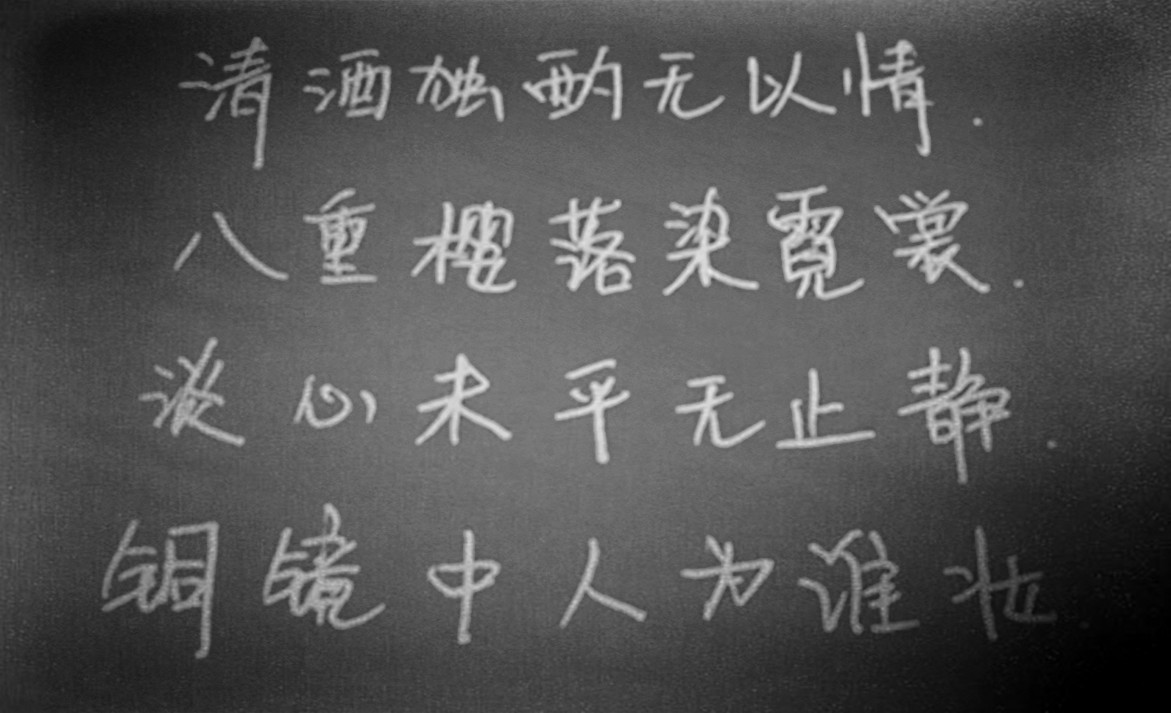 清酒独酌无以情.
八重樱落染霓裳.
淡心未平无止静.
铜镜中人为谁妆.